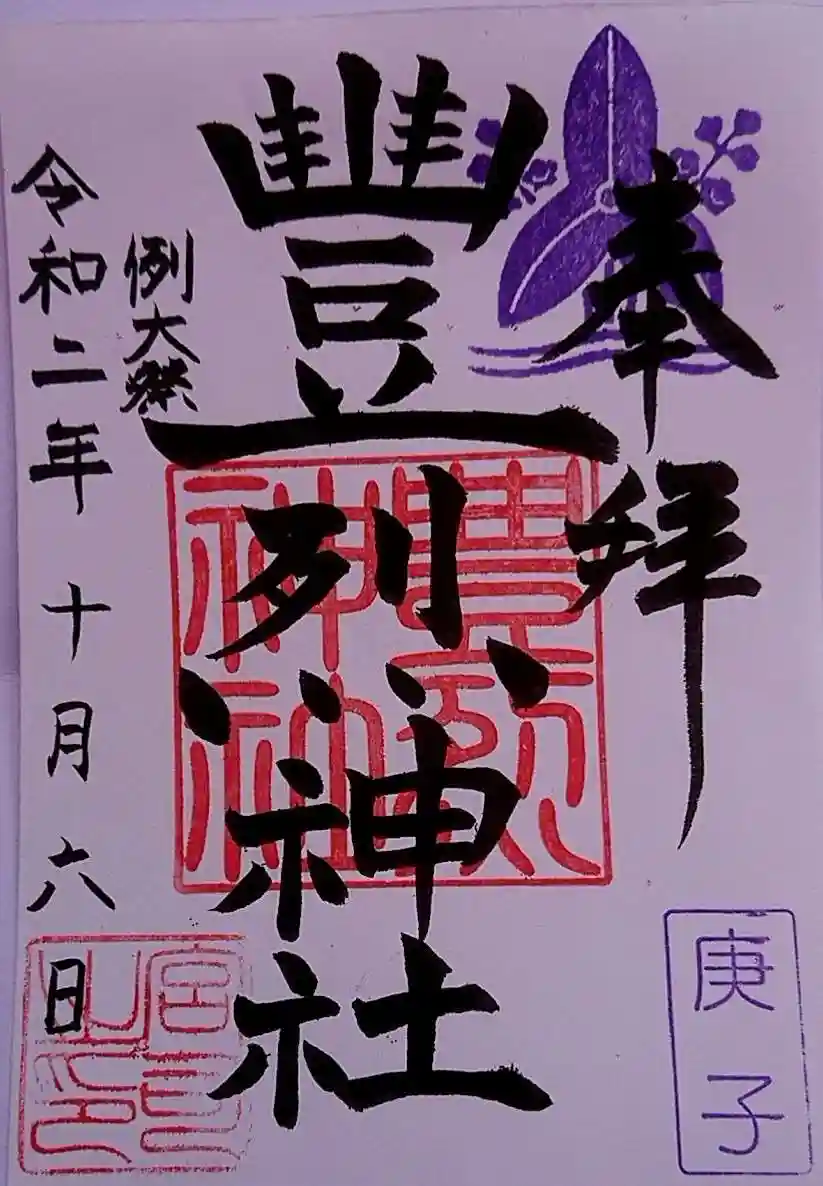 奉拝
豊烈神社
例大祭
令和二年十月六日
庚子
豊烈神社
宮司之印